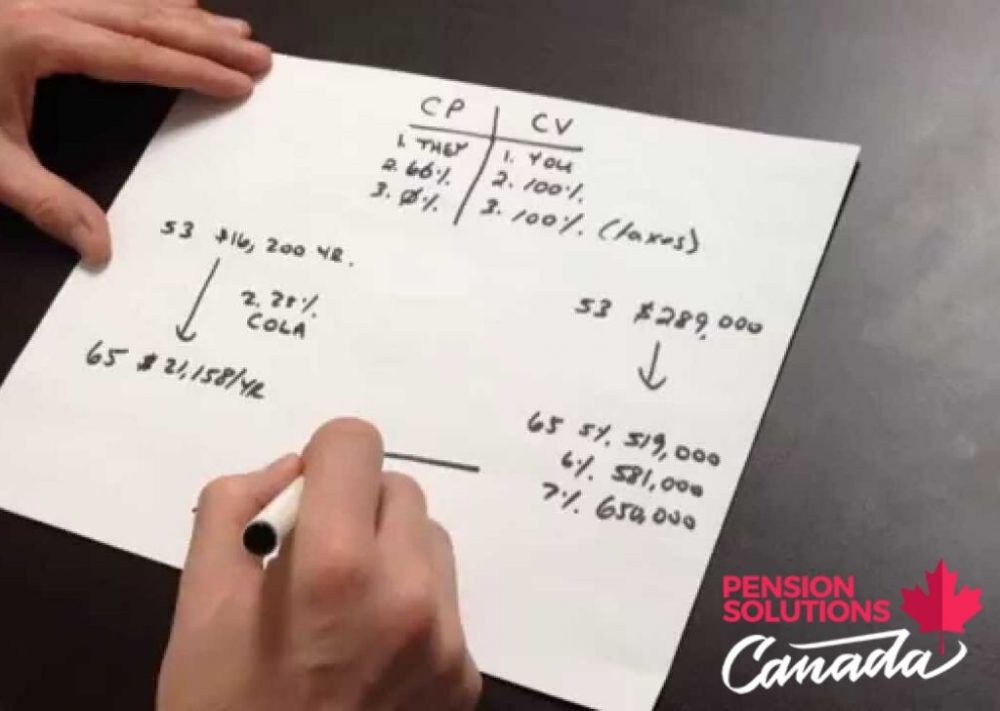 CP CV
1. THEY 1. YOU
2. 66% 2. 100%
3. 0% 3. 100% (taxes)
53 $16,200 YR.
2.25%
COLA
65 $21,158/YR
53 $289,000
65 5% 519,000
6% 581,000
7% 650,000
PENSION
SOLUTIONS
Canada